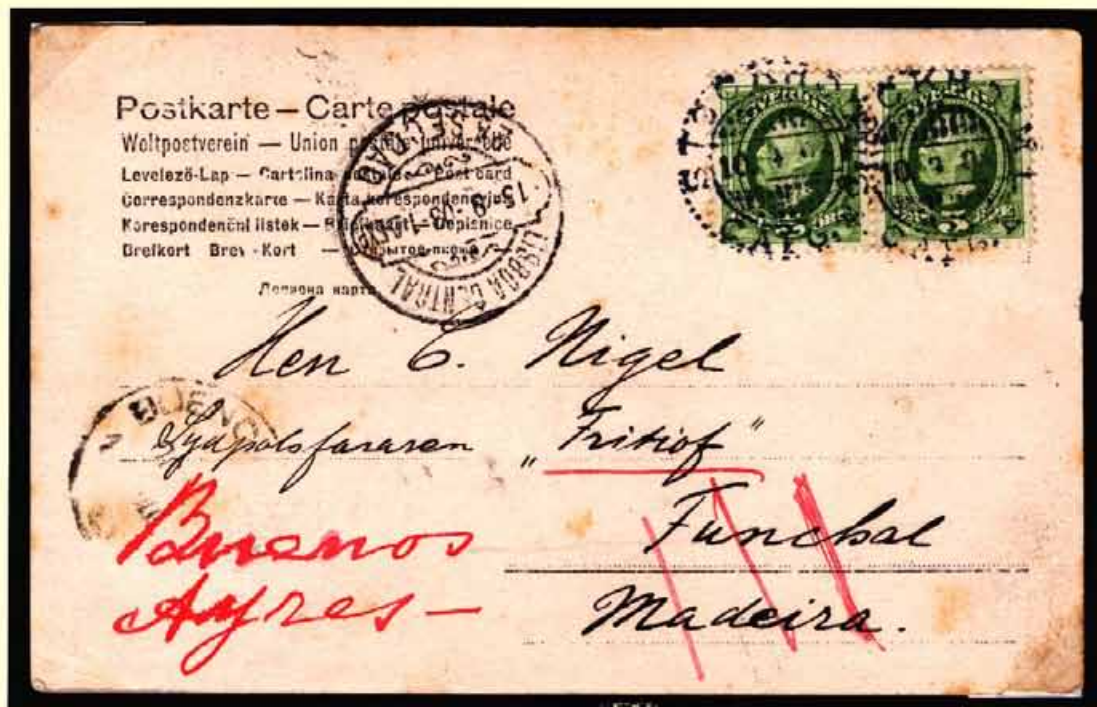 Postkarte – Carte postale
Weltpostverein — Union postale universelle
Levelező-Lap — Cartolina postale — Post card
Correspondenzkarte — Karta korespondencyjna
Korespondenční listek — Briefkaart — Dopisnice
Brefkort Brev-Kort — Открытое письмо
LISBOA CENTRAL
STOCKHOLM
SVERIGE SVERIGE
10 10
5 5
Herr C. Nigel
Sydpolsfararen "Fritiof"
Funchal
Madeira.
BUENOS
Buenos
Ayres —